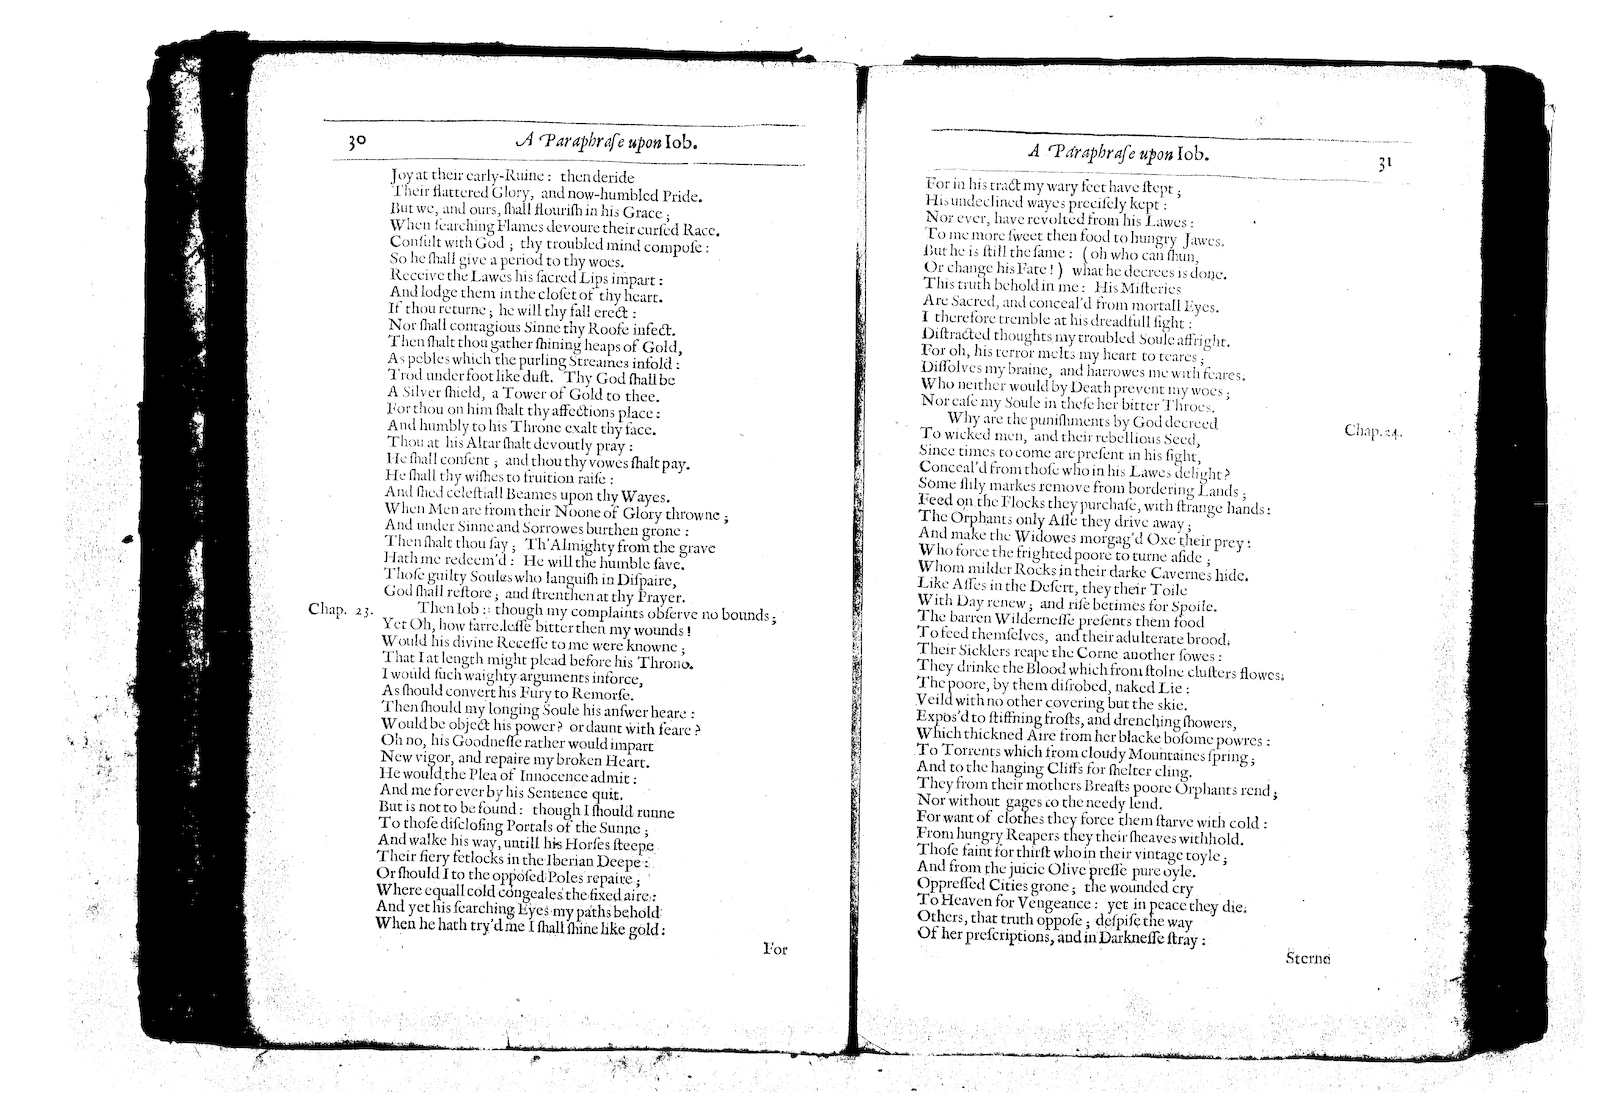 30
A Paraphraſe upon Iob.
Joy at their early-Ruine: then deride
Their flattered Glory, and now-humbled Pride.
But we, and ours, ſhall flouriſh in his Grace;
When ſearching Flames devoure their curſed Race.
Conſult with God; thy troubled mind compoſe:
So he ſhall give a period to thy woes.
Receive the Lawes his ſacred Lips impart:
And lodge them in the cloſet of thy heart.
If thou returne; he will thy fall erect:
Nor ſhall contagious Sinne thy Roofe infect.
Then ſhalt thou gather ſhining heaps of Gold,
As pebles which the purling Streames infold:
Trod under foot like duſt. Thy God ſhall be
A Silver ſhield, a Tower of Gold to thee.
For thou on him ſhalt thy affections place:
And humbly to his Throne exalt thy face.
Thou at his Altar ſhalt devoutly pray:
He ſhall conſent; and thou thy vowes ſhalt pay.
He ſhall thy wiſhes to fruition raiſe:
And ſhed celeſtiall Beames upon thy Wayes.
When Men are from their Noone of Glory throwne;
And under Sinne and Sorrowes burthen grone:
Then ſhalt thou ſay; Th'Almighty from the grave
Hath me redeem'd: He will the humble ſave.
Thoſe guilty Soules who languiſh in Diſpaire,
God ſhall reſtore; and ſtrenthen at thy Prayer.
Chap. 23. Then Iob: though my complaints obſerve no bounds;
Yet Oh, how farre leſſe bitter then my wounds!
Would his divine Receſſe to me were knowne;
That I at length might plead before his Throno.
I would ſuch waighty arguments inforce,
As ſhould convert his Fury to Remorſe.
Then ſhould my longing Soule his anſwer heare:
Would be object his power? or daunt with feare?
Oh no, his Goodneſſe rather would impart
New vigor, and repaire my broken Heart.
He would the Plea of Innocence admit:
And me for ever by his Sentence quit.
But is not to be found: though I ſhould runne
To thoſe diſcloſing Portals of the Sunne;
And walke his way, untill his Horſes ſteepe
Their fiery fetlocks in the Iberian Deepe:
Or ſhould I to the oppoſed Poles repaire;
Where equall cold congeales the fixed aire:
And yet his ſearching Eyes my paths behold
When he hath try'd me I ſhall ſhine like gold:
For
A Paraphraſe upon Iob.
31
For in his tract my wary feet have ſtept;
His undeclined wayes preciſely kept:
Nor ever, have revolted from his Lawes:
To me more ſweet then food to hungry Jawes.
But he is ſtill the ſame: (oh who can ſhun,
Or change his Fate!) what he decrees is done.
This truth behold in me: His Miſteries
Are Sacred, and conceal'd from mortall Eyes.
I therefore tremble at his dreadfull ſight:
Diſtracted thoughts my troubled Soule affright.
For oh, his terror melts my heart to teares;
Diſſolves my braine, and harrowes me with feares.
Who neither would by Death prevent my woes;
Nor eaſe my Soule in theſe her bitter Throes.
Why are the puniſhments by God decreed
Chap. 24.
To wicked men, and their rebellious Seed,
Since times to come are preſent in his ſight,
Conceal'd from thoſe who in his Lawes delight?
Some ſlily markes remove from bordering Lands;
Feed on the Flocks they purchaſe, with ſtrange hands:
The Orphants only Aſſe they drive away;
And make the Widowes morgag'd Oxe their prey:
Who force the frighted poore to turne aſide;
Whom milder Rocks in their darke Cavernes hide.
Like Aſſes in the Deſert, they their Toile
With Day renew; and riſe betimes for Spoile.
The barren Wilderneſſe preſents them food
To feed themſelves, and their adulterate brood.
Their Sicklers reape the Corne another ſowes:
They drinke the Blood which from ſtolne cluſters flowes.
The poore, by them diſrobed, naked Lie:
Veild with no other covering but the skie.
Expos'd to ſtiffning froſts, and drenching ſhowers,
Which thickned Aire from her blacke boſome powres:
To Torrents which from cloudy Mountaines ſpring;
And to the hanging Cliffs for ſhelter cling.
They from their mothers Breaſts poore Orphants rend;
Nor without gages to the needy lend.
For want of clothes they force them ſtarve with cold:
From hungry Reapers they their ſheaves withhold.
Thoſe faint for thirſt who in their vintage toyle;
And from the juicie Olive preſſe pure oyle.
Oppreſſed Cities grone; the wounded cry
To Heaven for Vengeance: yet in peace they die.
Others, that truth oppoſe; deſpiſe the way
Of her preſcriptions, and in Darkneſſe ſtray:
Sterne